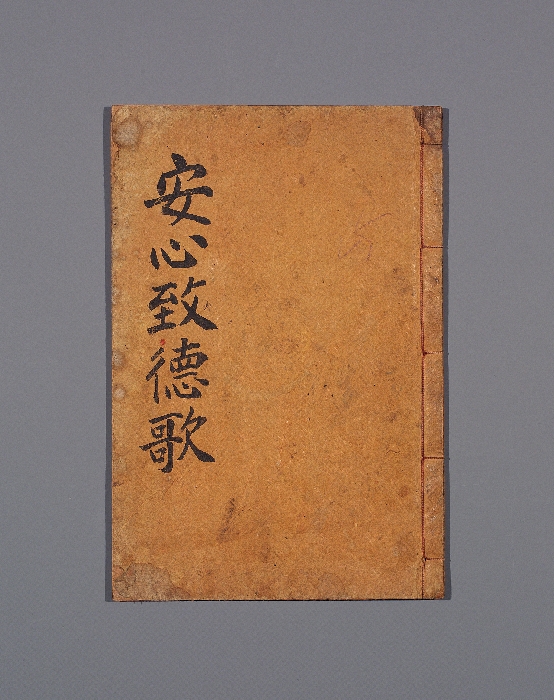 安心致德歌